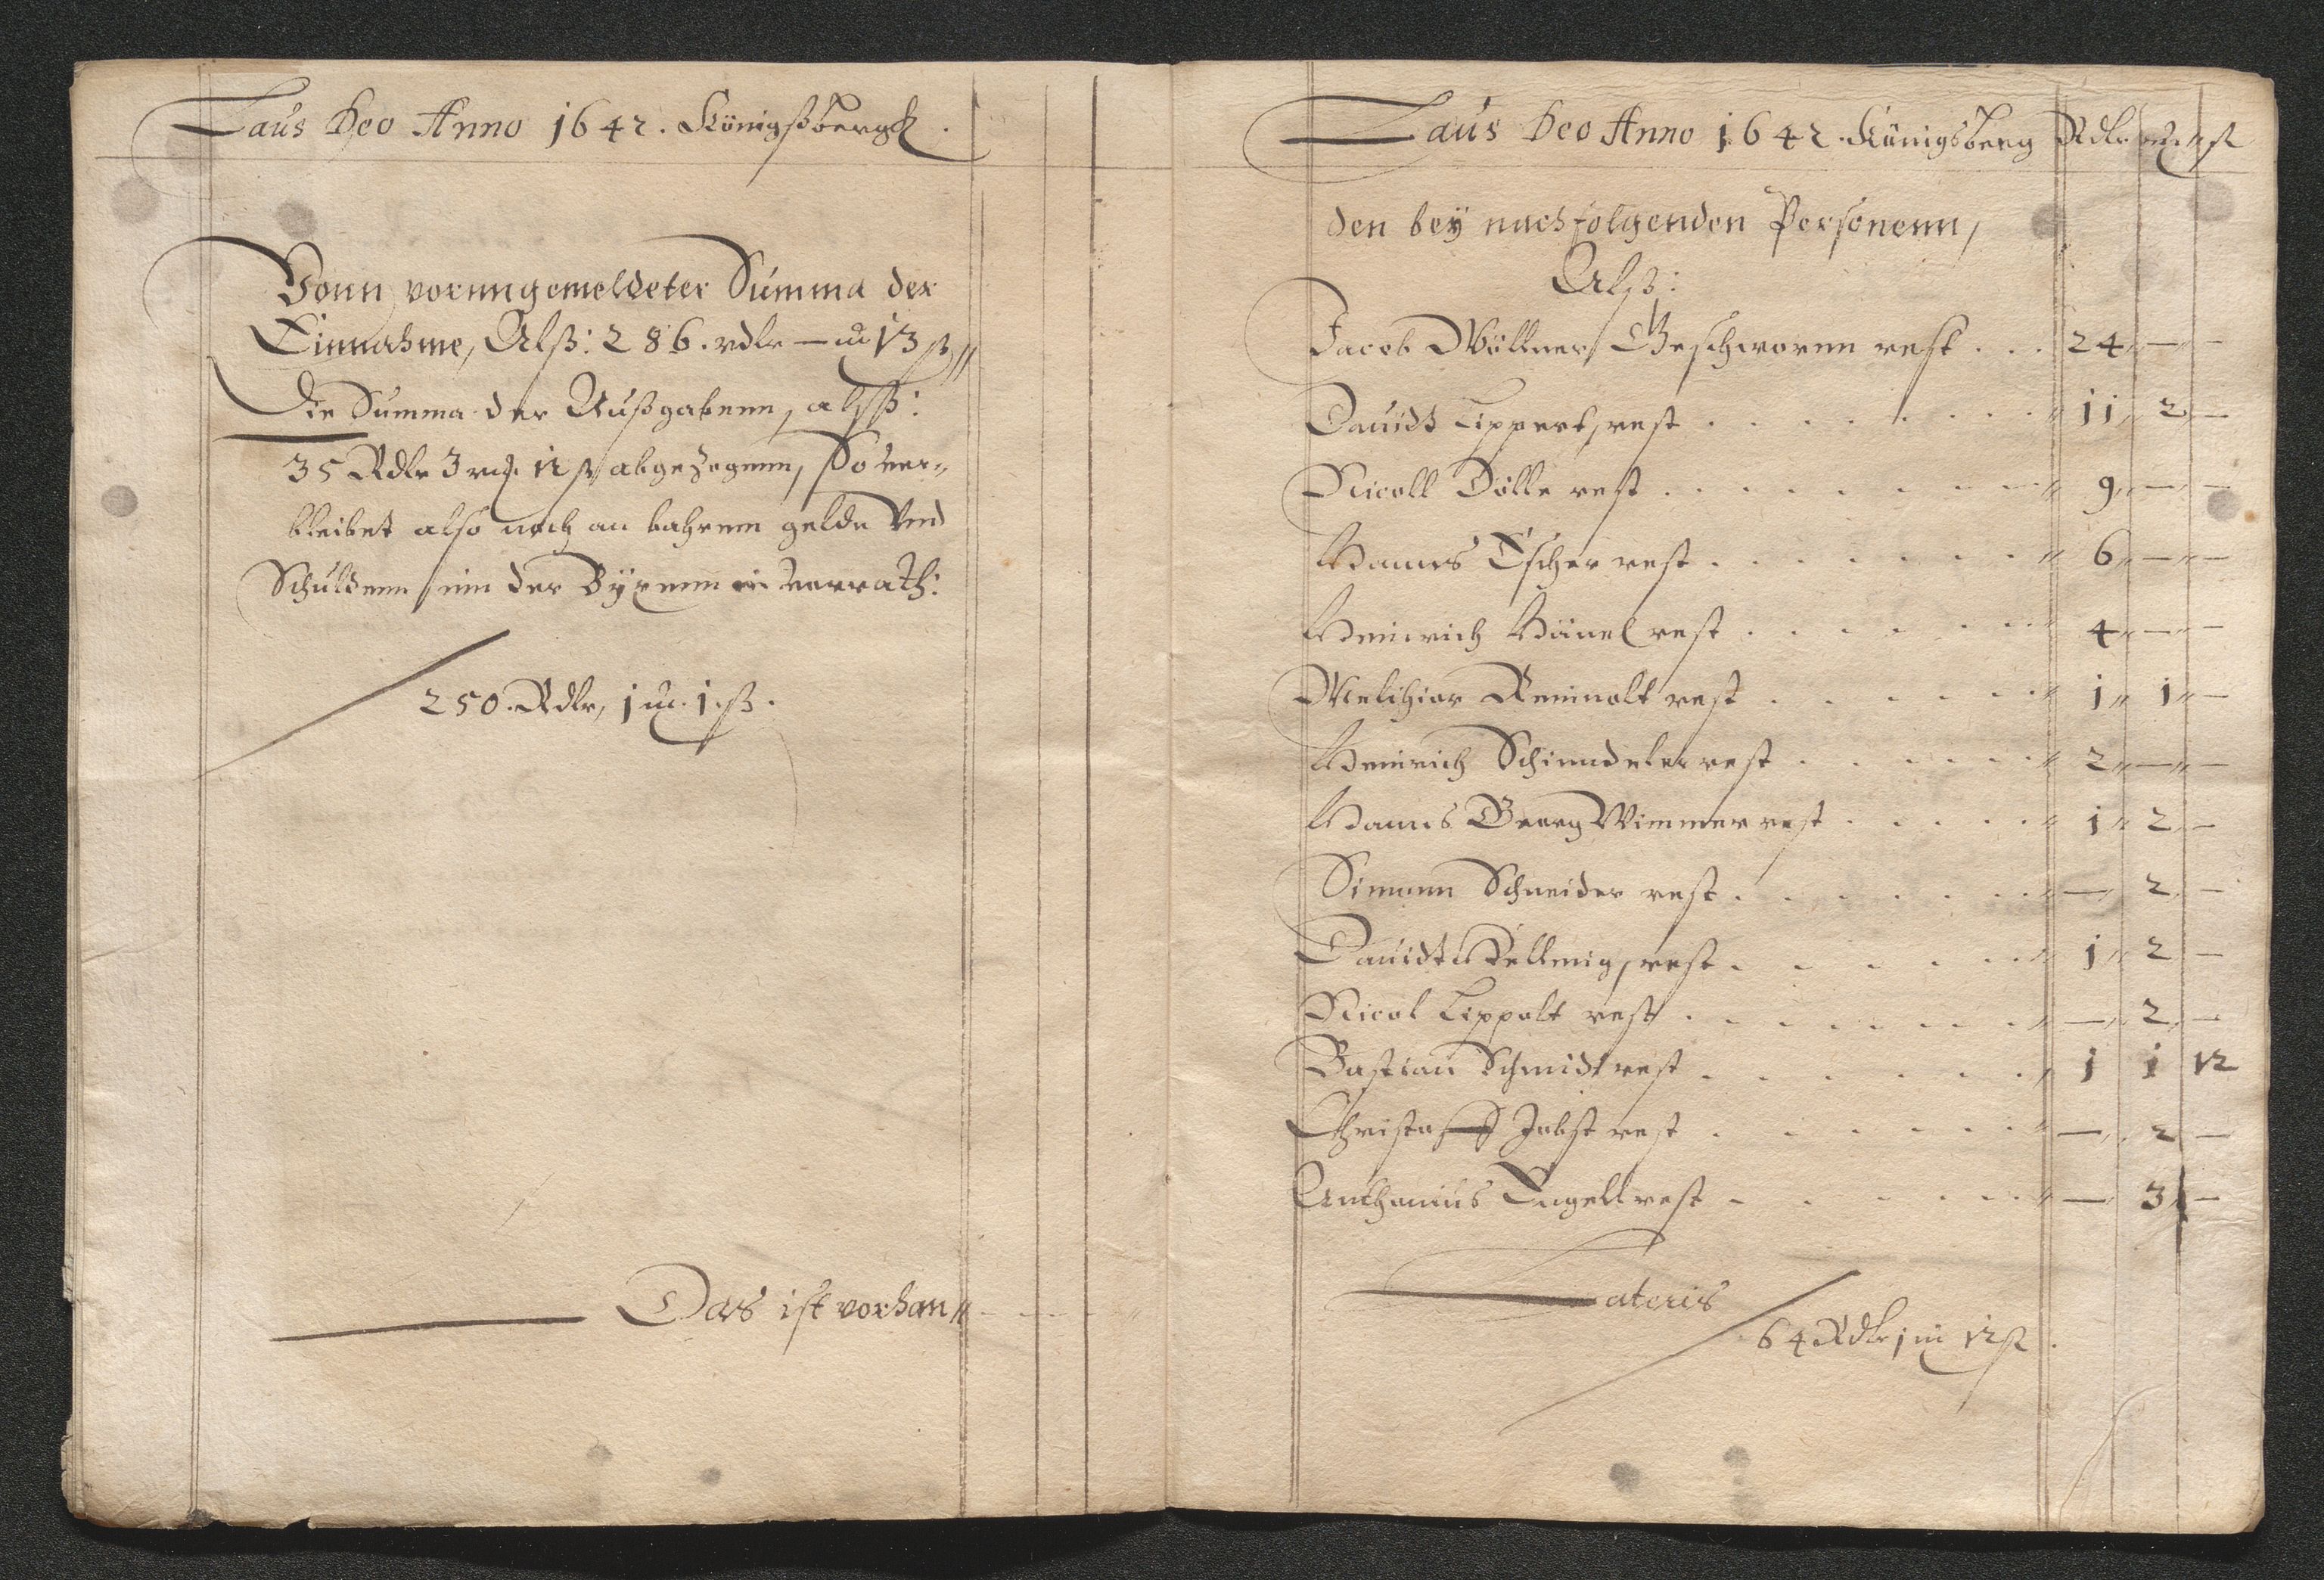 Laus Deo Anno 1642. Königßbergk.
Vonn vorangemeldeter Summa der
Einnahme, Alß: 286. rdlr — m 13 ß
Die Summa der Außgabenn, alß:
35 Rdlr 3 m 12 ß abgezogenn, So ver-
bleibet also noch an bahrem gelde vnd
Schuldenn inn der Büxenn in vorrath:
250. Rdlr, 1 m. 1. ß.
Das ist vorhan
Laus Deo Anno 1642. Königsberg Rdlr m ß
den bey nachfolgenden Personenn,
Alß:
Jacob Wöllner Geschworner rest . . . 24 — —
Dauidt Lippert, rest . . . 11 2 —
Nicoll Dölle rest . . . 9 — —
Hanns Escher rest . . . 6 — —
Heinrich Hänel rest . . . 4 — —
Melchior Reinnolt rest . . . 1 1 —
Heinrich Schinndeler rest . . . 2 — —
Hanns Georg Wimmer rest . . . 1 2 —
Simonn Schneider rest . . . — 2 —
Dauidt Hellmig, rest . . . 1 2 —
Nicol Lippolt rest . . . — 2 —
Bastian Schmidt rest . . . 1 1 12
Christoff Jobst rest . . . — 2 —
Anthonius Engell rest . . . — 3 —
Lateris
64 Rdlr 1 m 12 ß